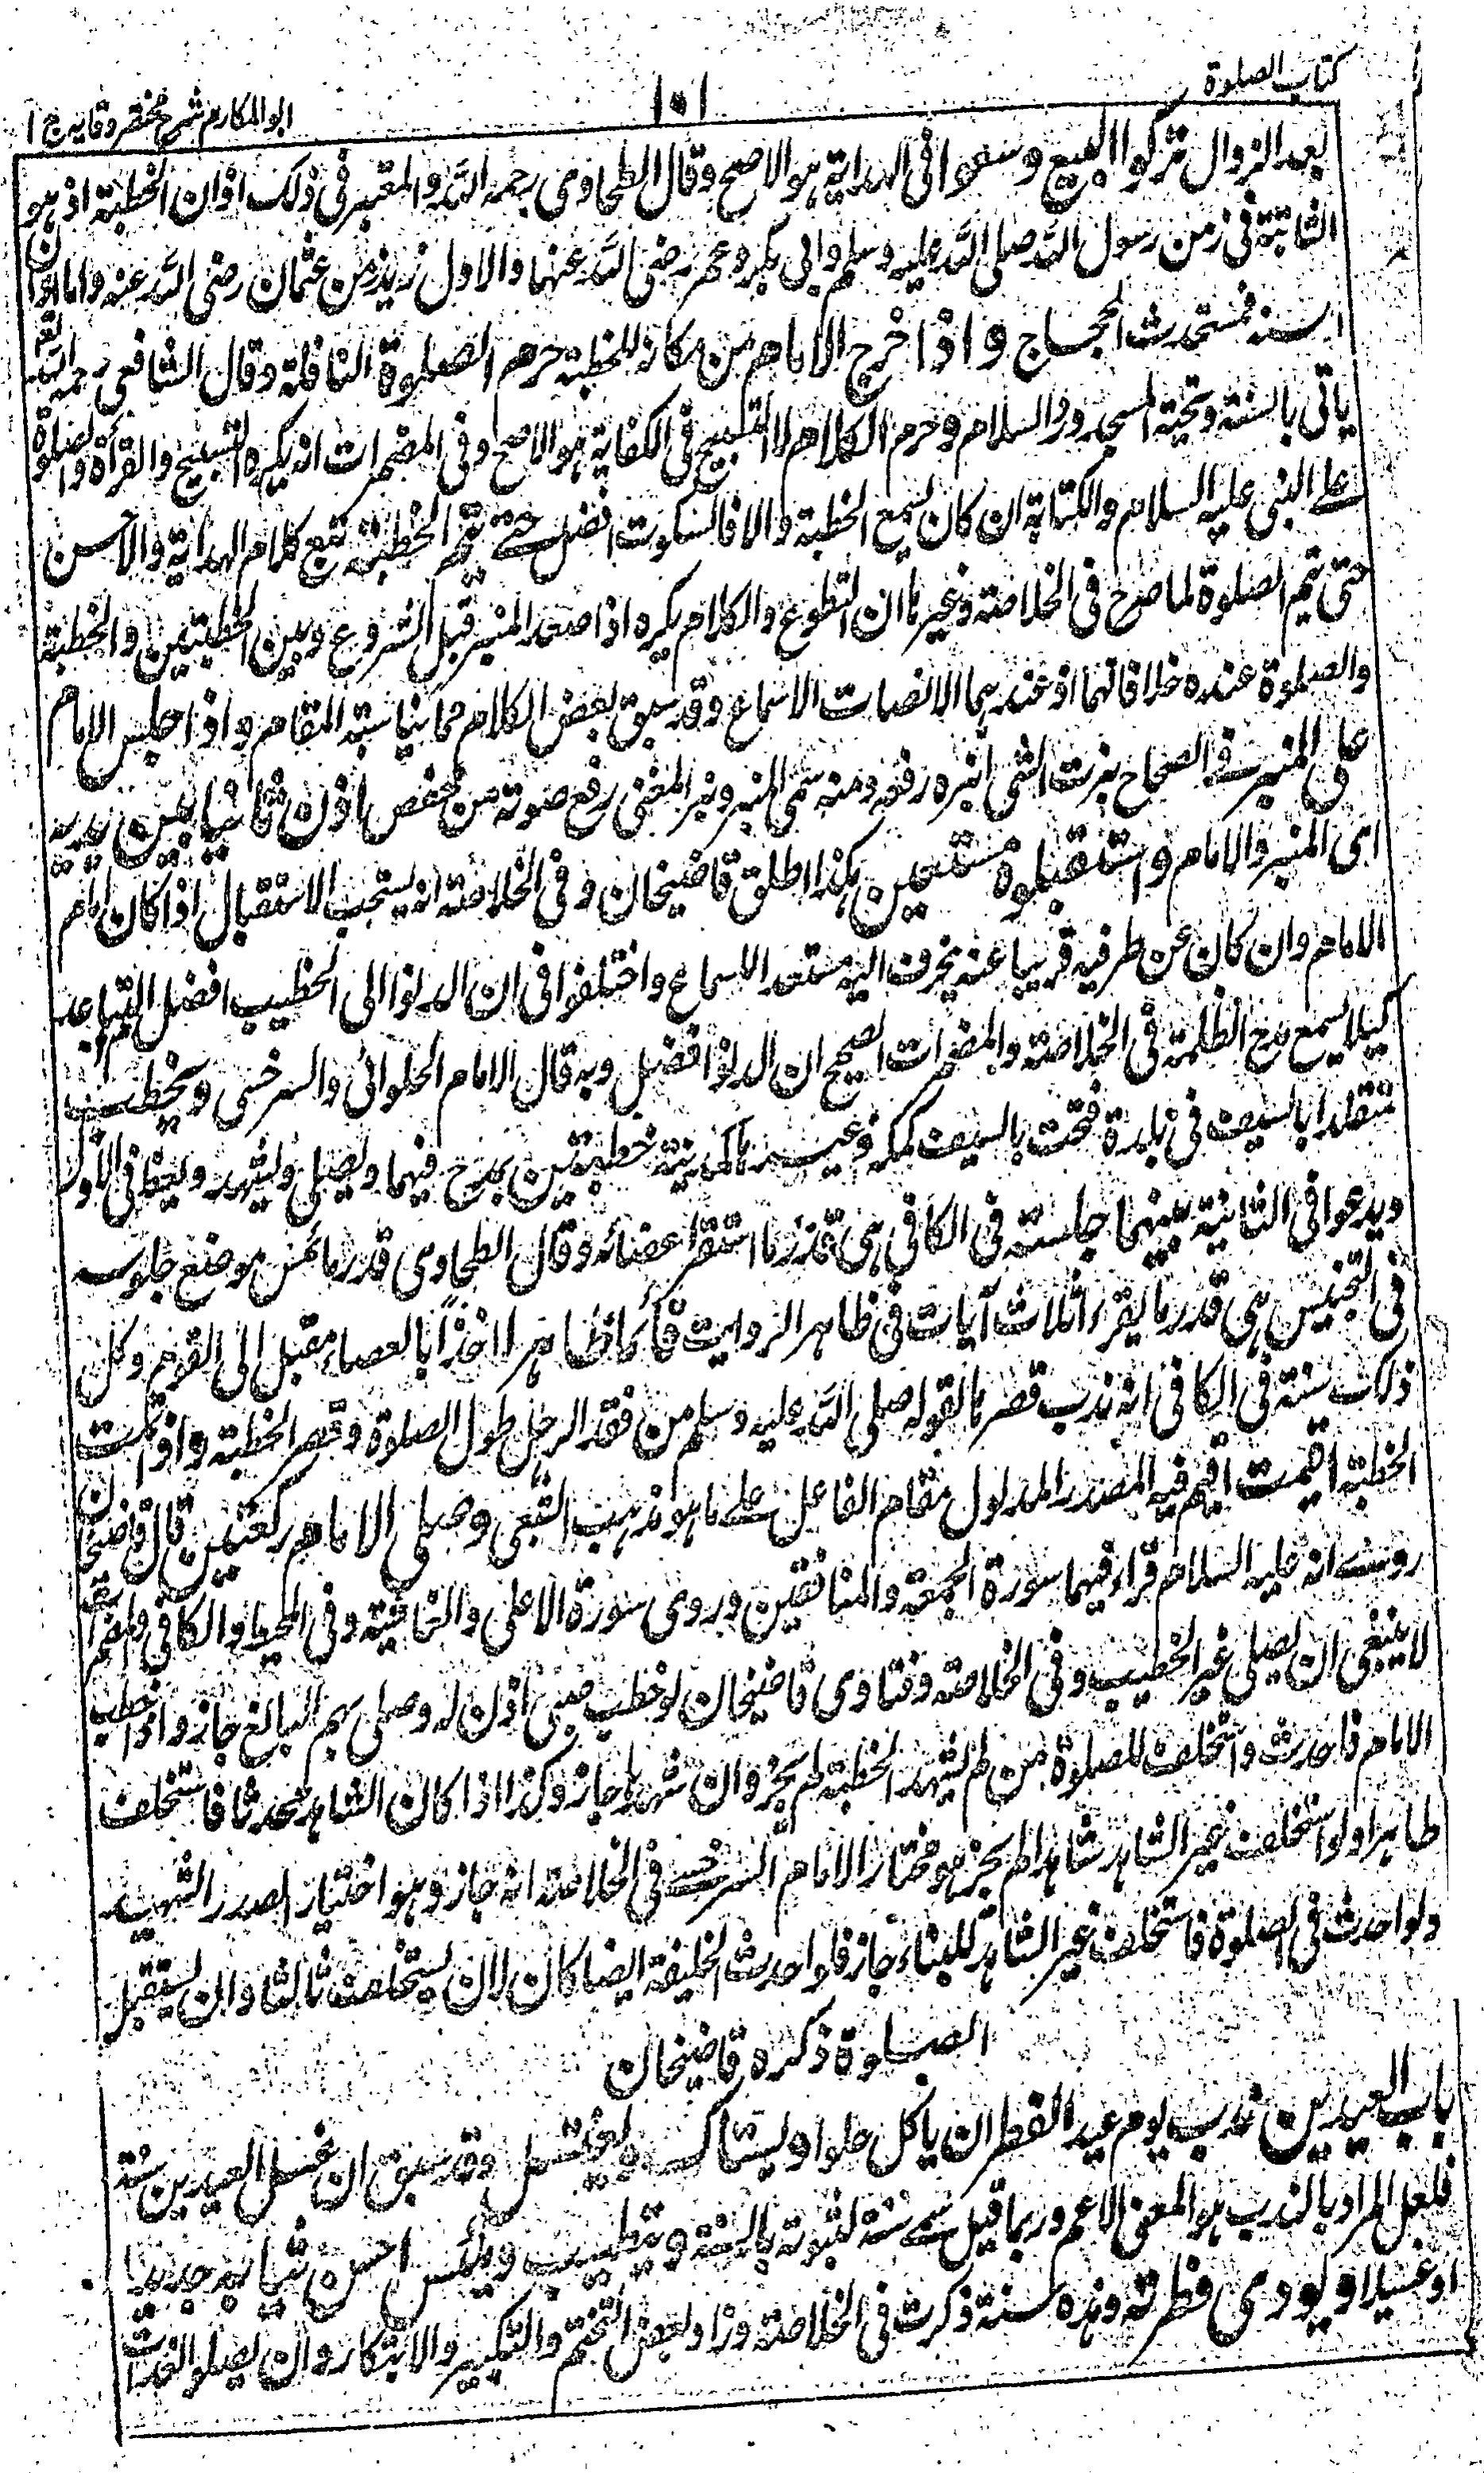 كتاب الصلوة
١٠١
ابو المكارم شرح مختصر وقايه ج ١
بعد الزوال تركوا البيع وسعوا فى الهداية هو الاصح وقال الطحاوى رحمه الله والمعتبر فى ذلك اذان الخطبة اذ هو
الثابتة فى زمن رسول الله صلى الله عليه وسلم وابى بكر وعمر رضى الله عنهما والاول زيد زمن عثمان رضى الله عنه واما اذان
السنة فمستحدث الحجاج واذا خرج الامام من مكانه للخطبة حرم الصلوة النافلة وقال الشافعى رحمه الله
ياتى بالسنة وتحية المسجد ورد السلام وحرم الكلام لا التسبيح فى الكفاية هو الاصح وفى المضمرات انه يكره التسبيح والقرأة والصلوة
على النبى عليه السلام والكتابة ان كان يسمع الخطبة والا فالسكوت افضل حتى تتم الخطبة تتبع كلام الهداية والاحسن
حتى تتم الصلوة لما صرح فى الخلاصة وغيرها ان التطوع والكلام يكره اذا صعد المنبر قبل الشروع وبين الخطبتين والخطبة
والصلوة عنده خلافا لهما اذ عندهما الانصات الاسماع وقد سبق بعض الكلام مما يناسبة المقام واذا جلس الامام
على المنبر فى الصحاح نبرت الشى انبره رفعه ومنه سمى المنبر ونبر المغنى رفع صوته من خفض اذن ثانيا بين يديه
اى المنبر والامام واستقبلوه مستمعين هكذا اطلق قاضيخان وفى الخلاصة انه يستحب الاستقبال اذا كان امام
الامام وان كان عن طرفيه قريبا عنه ينحرف اليه مستعد الاسماع واختلفوا فى ان الدنو الى الخطيب افضل ام التباعد
كيلا يسمع مدح الظلمة فى الخلاصة والمضمرات الصحيح ان الدنو افضل وبه قال الامام الحلوائى والسرخسى ويخطب
متقلدا بالسيف فى بلدة فتحت بالسيف كمكة وغيره كالمدينة خطبتين يمدح فيهما ويصلى ويشهد ويعظ فى الاول
ويدعوا فى الثانية بينهما جلسة فى الكافى هى قدر ما استقر اعضائه وقال الطحاوى قدر ما يمس موضع جلوسه
فى التجنيس هى قدر ما يقرء ثلاث آيات فى ظاهر الرواية قائما طاهرا اخذا بالعصاء مقبل الى القوم وكل
ذلك سنة فى الكافى انه ندب قصرها لقوله صلى الله عليه وسلم من فقه الرجل طول الصلوة وقصر الخطبة واذا تمت
الخطبة اقيمت اقيم فيه المصدر المدلول مقام الفاعل على ما هو مذهب البعض وصلى الامام ركعتين قال قاضيخان
روى انه عليه السلام قرأء فيهما سورة الجمعة والمنافقين وروى سورة الاعلى والغاشية وفى المحيط والكافى وغيرهما
لا ينبغى ان يصلى غير الخطيب وفى الخلاصة وفتاوى قاضيخان لو خطب صبى اذن له وصلى بهم البالغ جاز واذا خطب
الامام فاحدث واستخلف للصلوة من لم يشهد الخطبة لم يجز وان شهدها جاز وكذا اذا كان الشاهد محدثا فاستخلف
طاهرا ولو استخلف غير الشاهد شاهدا لم يجز هو مختار الامام السرخسى فى الخلاصة انه جاز وهو اختيار الصدر الشهيد
ولو احدث فى الصلوة فاستخلف غير الشاهد للبناء جاز فلو احدث الخليفة ايضا كان لان يستخلف ثالثا وان يستقبل
الصلوة ذكره قاضيخان
باب العيدين ندب يوم عيد الفطر ان ياكل حلوا ويستاك ويغتسل وقد سبق ان غسل العيدين سنة
فلعل المراد بالندب هو المعنى الاعم وربما قيل سمى سنة لثبوته بالسنة ويتطيب ويلبس احسن ثيابه جديدا
او غسيلا ويودى فطرته وهذه سنة ذكرت فى الخلاصة وزاد بعض التختم والتبكير والابتكار وان يصلوا الغداة